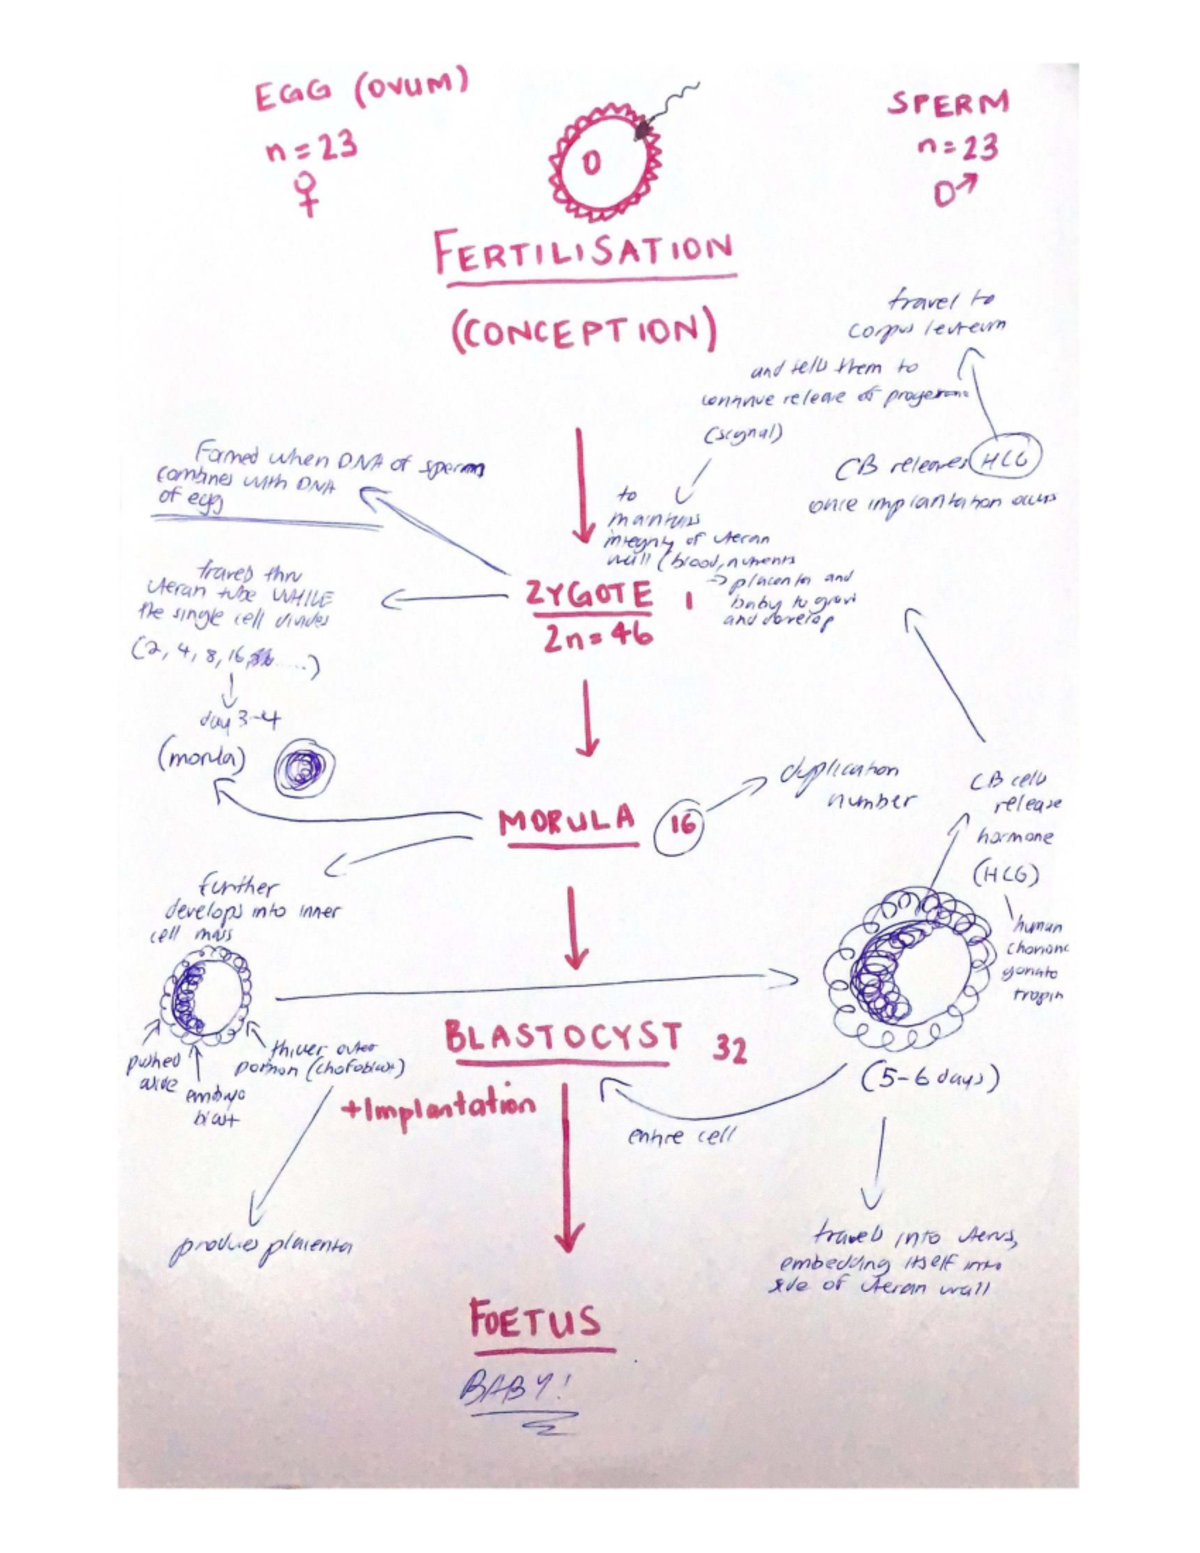 EGG (OVUM)
n = 23
♀
SPERM
n = 23
♂
FERTILISATION
(CONCEPTION)
travel to
corpus leuteum
and tells them to
continue release of progesterone
(signal)
CB releases HCG
once implantation occurs
to
maintains
integrity of uteran
wall (blood, nutrients
→ placenta and
baby to grow
and develop
Formed when DNA of sperm
combines with DNA
of egg
ZYGOTE 1
2n = 46
travels thru
uteran tube WHILE
the single cell divides
(2, 4, 8, 16, ....)
day 3-4
(morula)
MORULA 16
duplication
number
CB cells
release
hormone
(HCG)
human
chorionic
gonato
tropin
further
develops into inner
cell mass
pushed
aside
embryo
blast
outer
portion
BLASTOCYST 32
+Implantation
(5-6 days)
entire cell
produces placenta
travels into uterus,
embedding itself into
side of uteran wall
FOETUS
BABY!